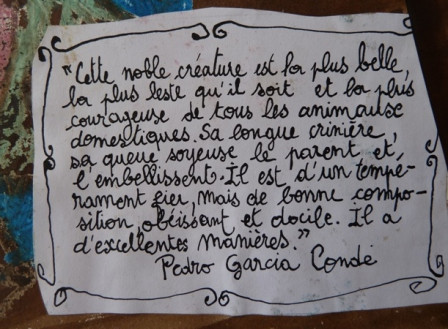 "Cette noble créature est la plus belle,
la plus leste qu'il soit et la plus
courageuse de tous les animaux
domestiques. Sa longue crinière,
sa queue soyeuse le parent et
l'embellissent. Il est d'un tempé-
rament fier, mais de bonne compo-
sition, obéissant et docile. Il a
d'excellentes manières."
Pedro Garcia Conde